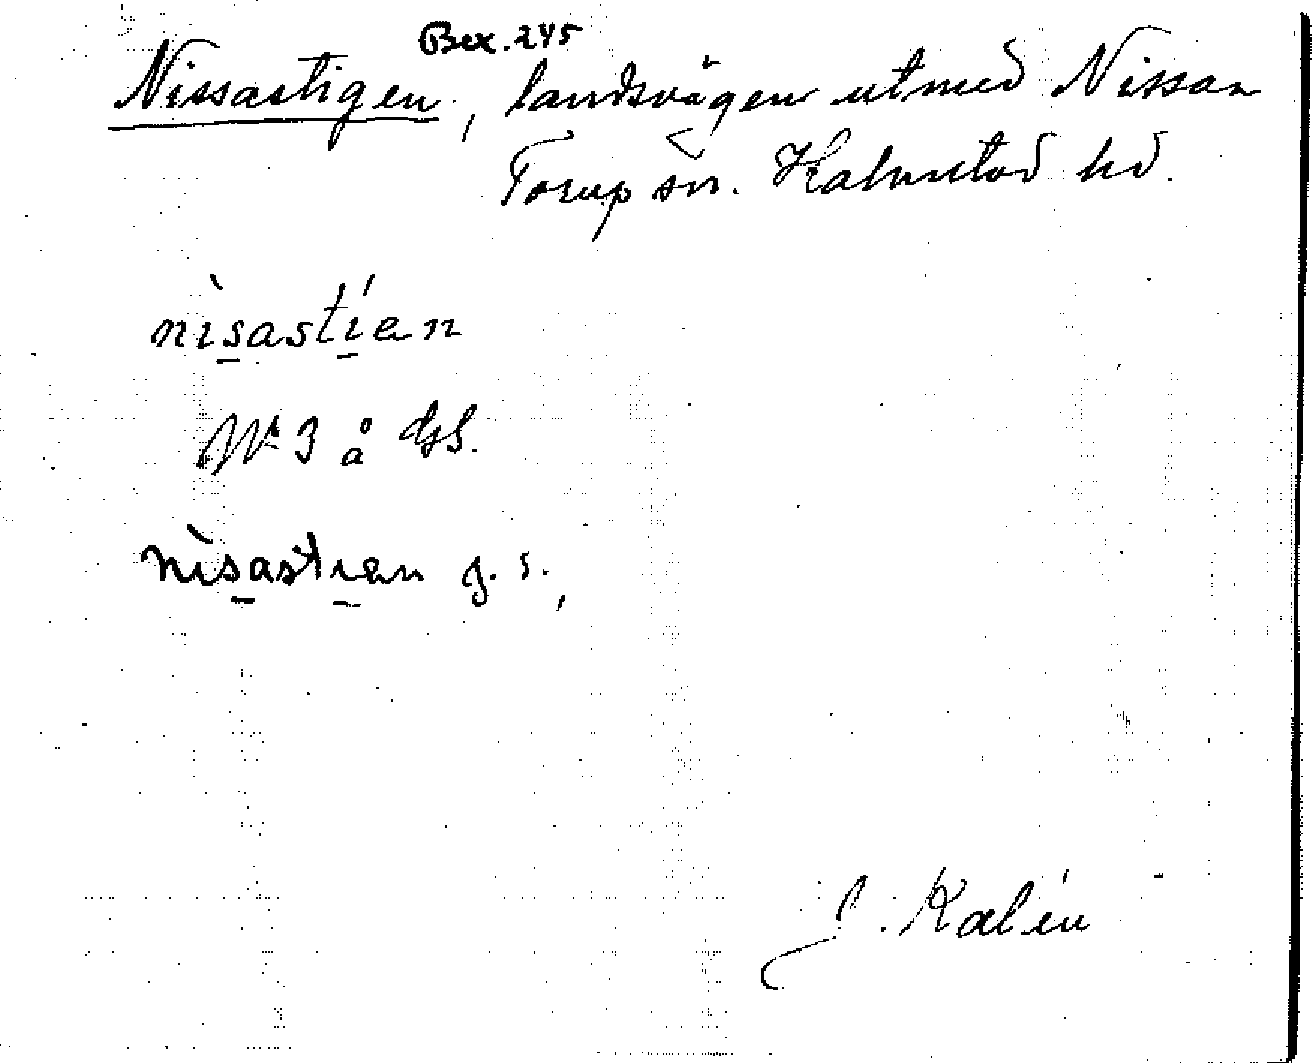 Bex. 245
Nissastigen, landsvägen utmed Nissan
Torup sn. Halmstad hd.
nìsastíen
Nr 3 å GS.
nìsastien g. s.,
J. Kalén